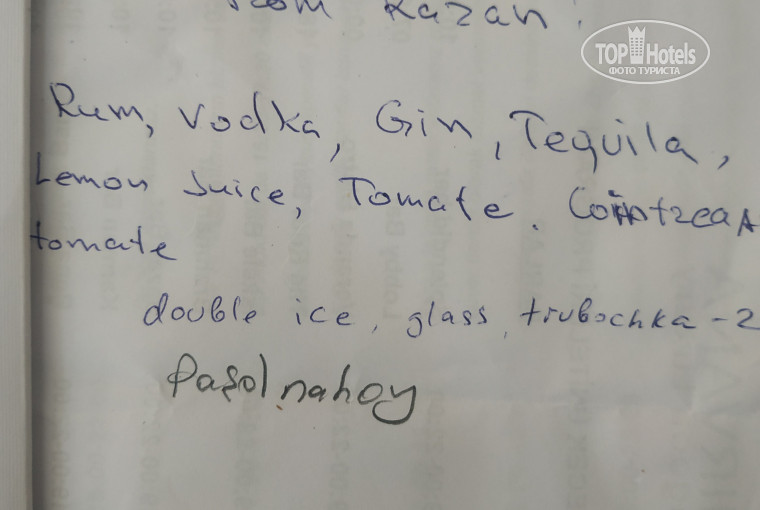 from Kazan!
TOP Hotels
ФОТО ТУРИСТА
Rum, Vodka, Gin, Tequila,
Lemon Juice, Tomate. Cointrea
tomate
double ice, glass, trubochka - 2
Pasol nahoy